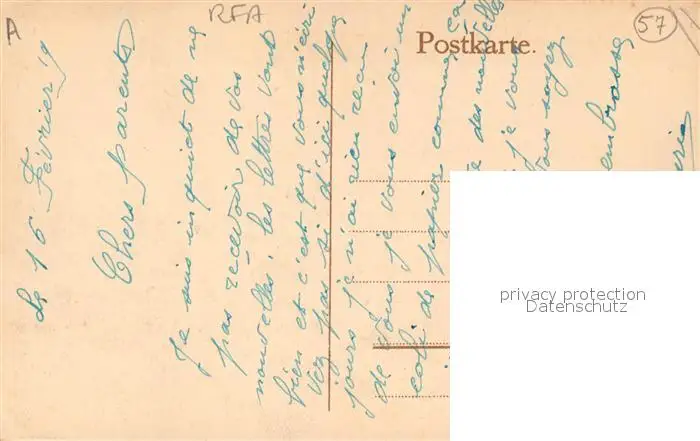 A
RFA
57
Postkarte.
Le 16 Février 19
Chers parents
Je suis inquiet de ne
pas récevoir de vos
nouvelles, les lettres vont
bien et c'est que vous n'écri
vez pas si d'ici quelque
jours je n'ai rien réçu
de vous je vous envoi un
coli de papier comme ça
des nouvelles
je vous
vous soyez
embrasse
privacy protection
Datenschutz